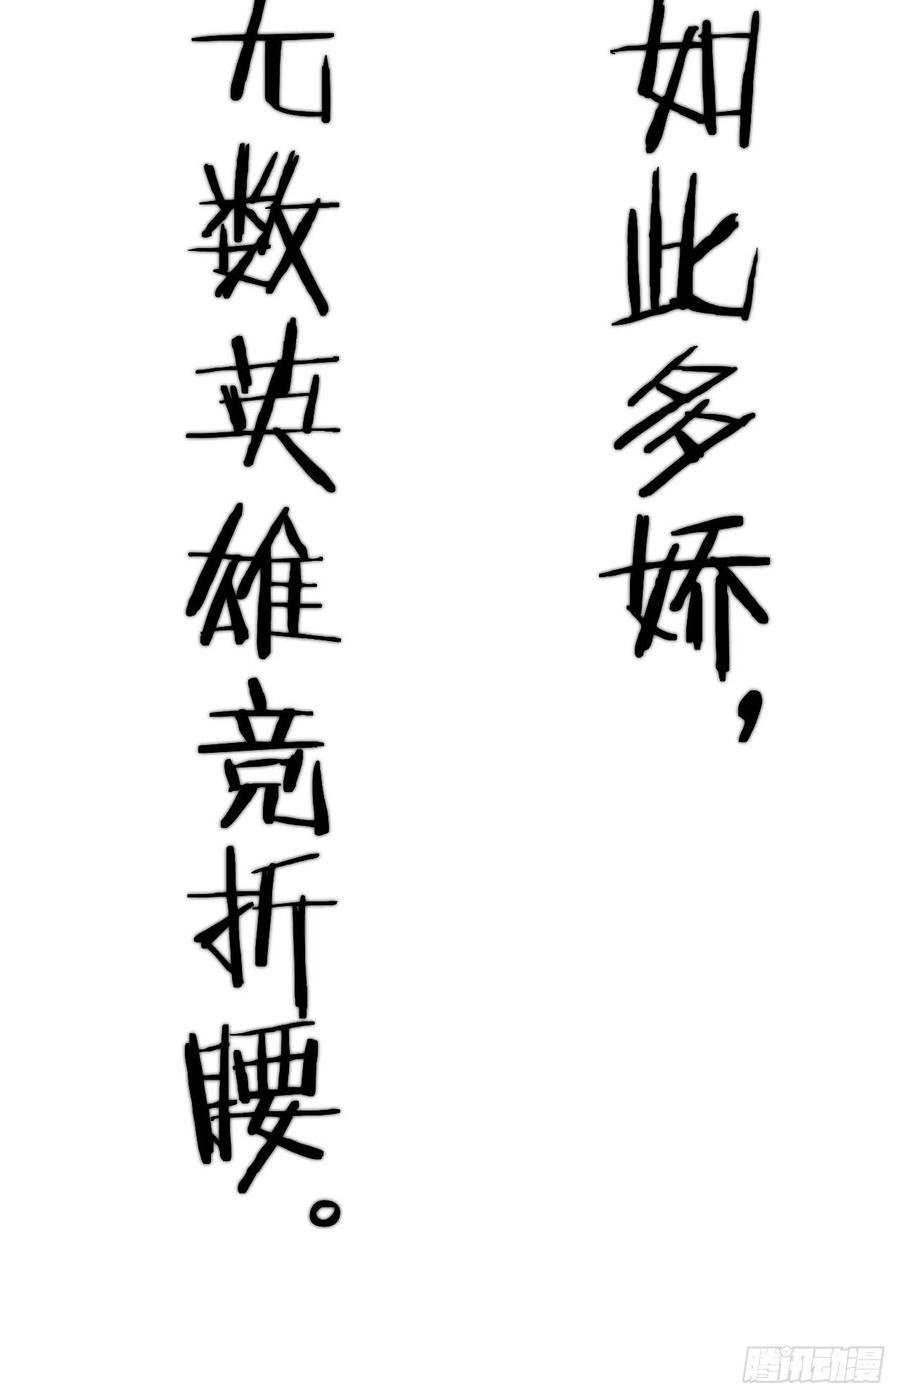 如此多娇，
无数英雄竞折腰。
腾讯动漫